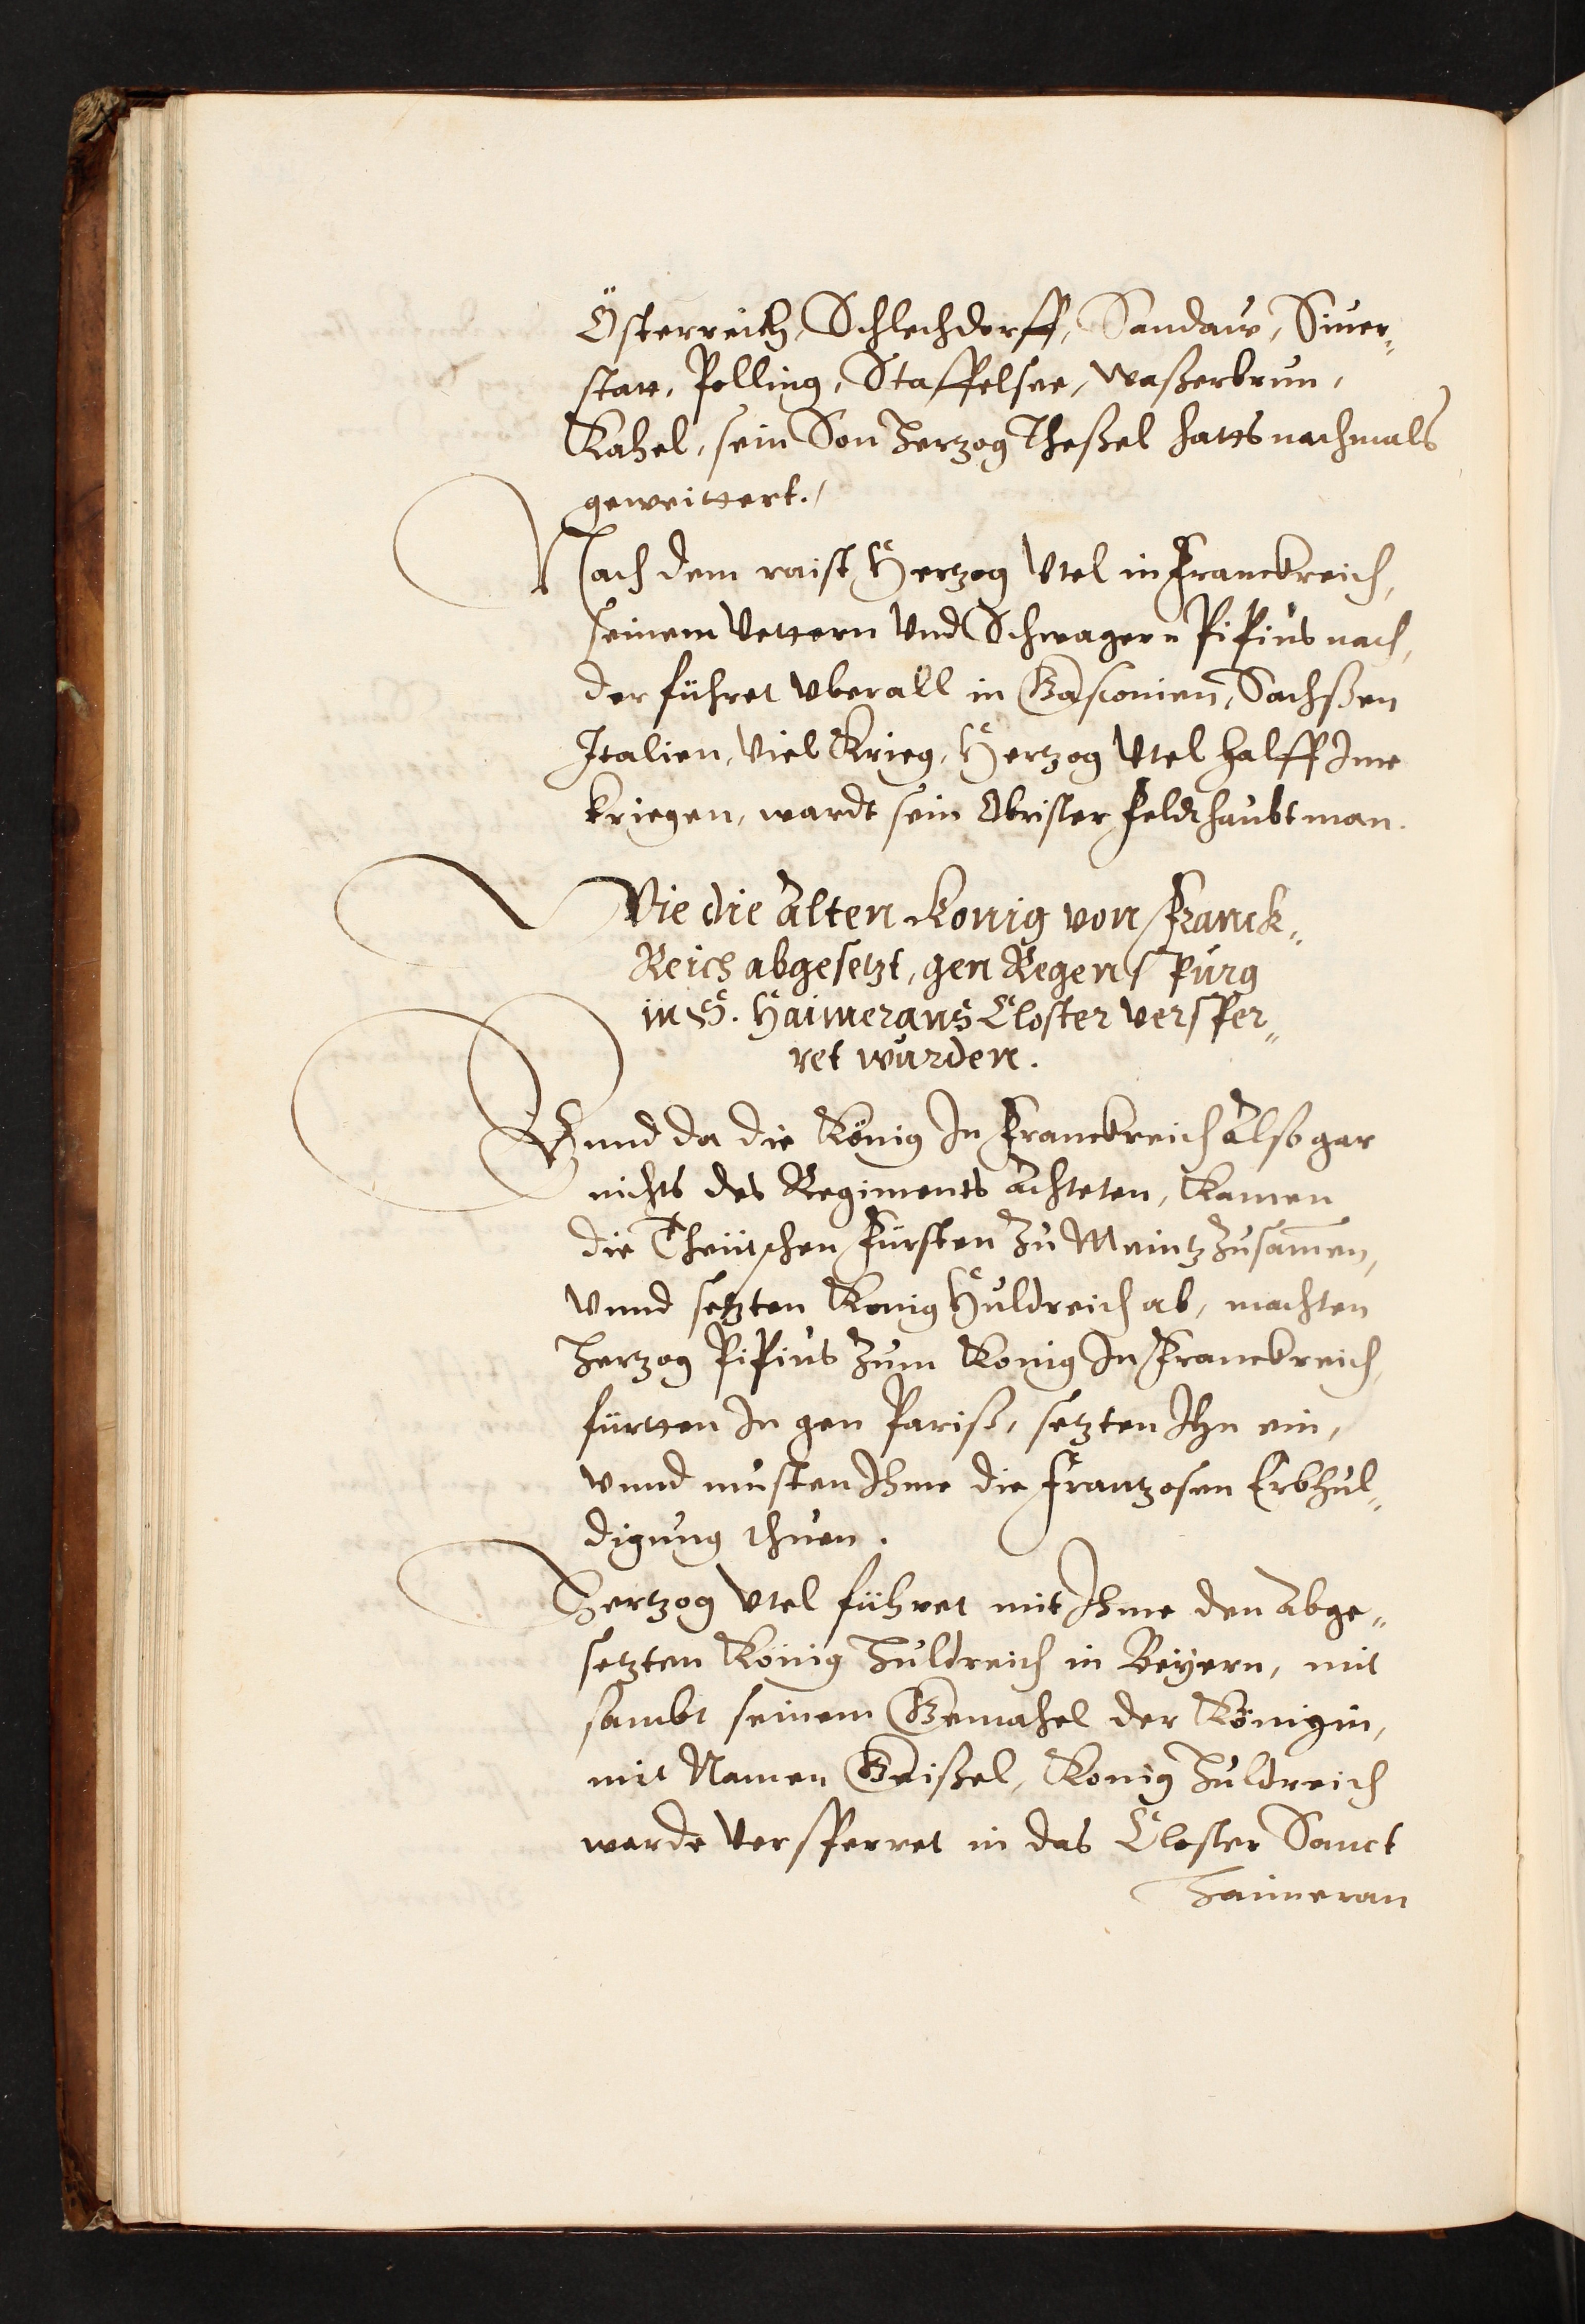 Österreich, Schlechdorff, Sandaw, Siuer„
statt, Polling, Staffelsee, waßerbrun,
Kahel, sein Son Hertzog Theßel hatts nachmals
geweittert.
Nach dem raist Hertzog Vtel in Franckreich,
seinem Vettern Vnd Schwagern Pipius nach,
der führet vberall in Gasconien, Sachßen
Italien, Viel Krieg, Hertzog Vtel halff Ime
kriegen, wardt sein Obrister Feldthaubtman.
Wie die Alten König von Franck„
Reich abgesetzt, gen Regenspurg
in S. Haimerans Closter versper„
ret wurden.
Vnnd da die König In Franckreich Also gar
nichts des Regiments Achteten, Kamen
die Theütschen Fürsten zu Meintz zusamen,
Vnnd setzten König Huldreich ab, machten
Hertzog Pipius zum König In Franckreich,
fürtten In gen Pariß, setzten Ihn ein,
Vnnd musten Ihme die Frantzosen Erbhul„
digung thuen.
Hertzog Vtel führet mit Ihme den Abge„
setzten König Huldreich in Beyern, mit
sambt seinem Gemahel der Königin,
mit Namen Geißel, König Huldreich
warde Versperret in das Closter Sanct
Haimeran